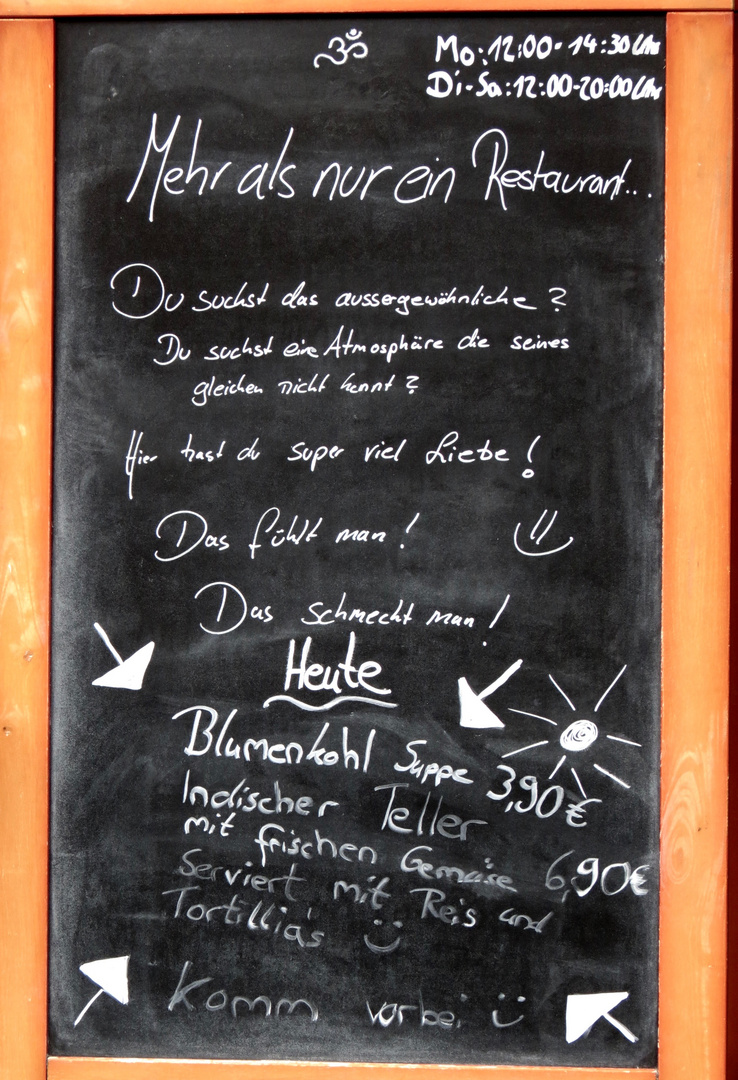 ॐ
Mo:12:00-14:30 Uhr
Di-Sa:12:00-20:00 Uhr
Mehr als nur ein Restaurant...
Du suchst das aussergewöhnliche?
Du suchst eine Atmosphäre die seines
gleichen nicht kennt?
Hier hast du super viel Liebe!
Das fühlt man!
Das schmeckt man!
Heute
Blumenkohl Suppe 3,90€
Indischer Teller
mit frischen Gemüse 6,90€
Serviert mit Reis und
Tortillia's
Komm vorbei